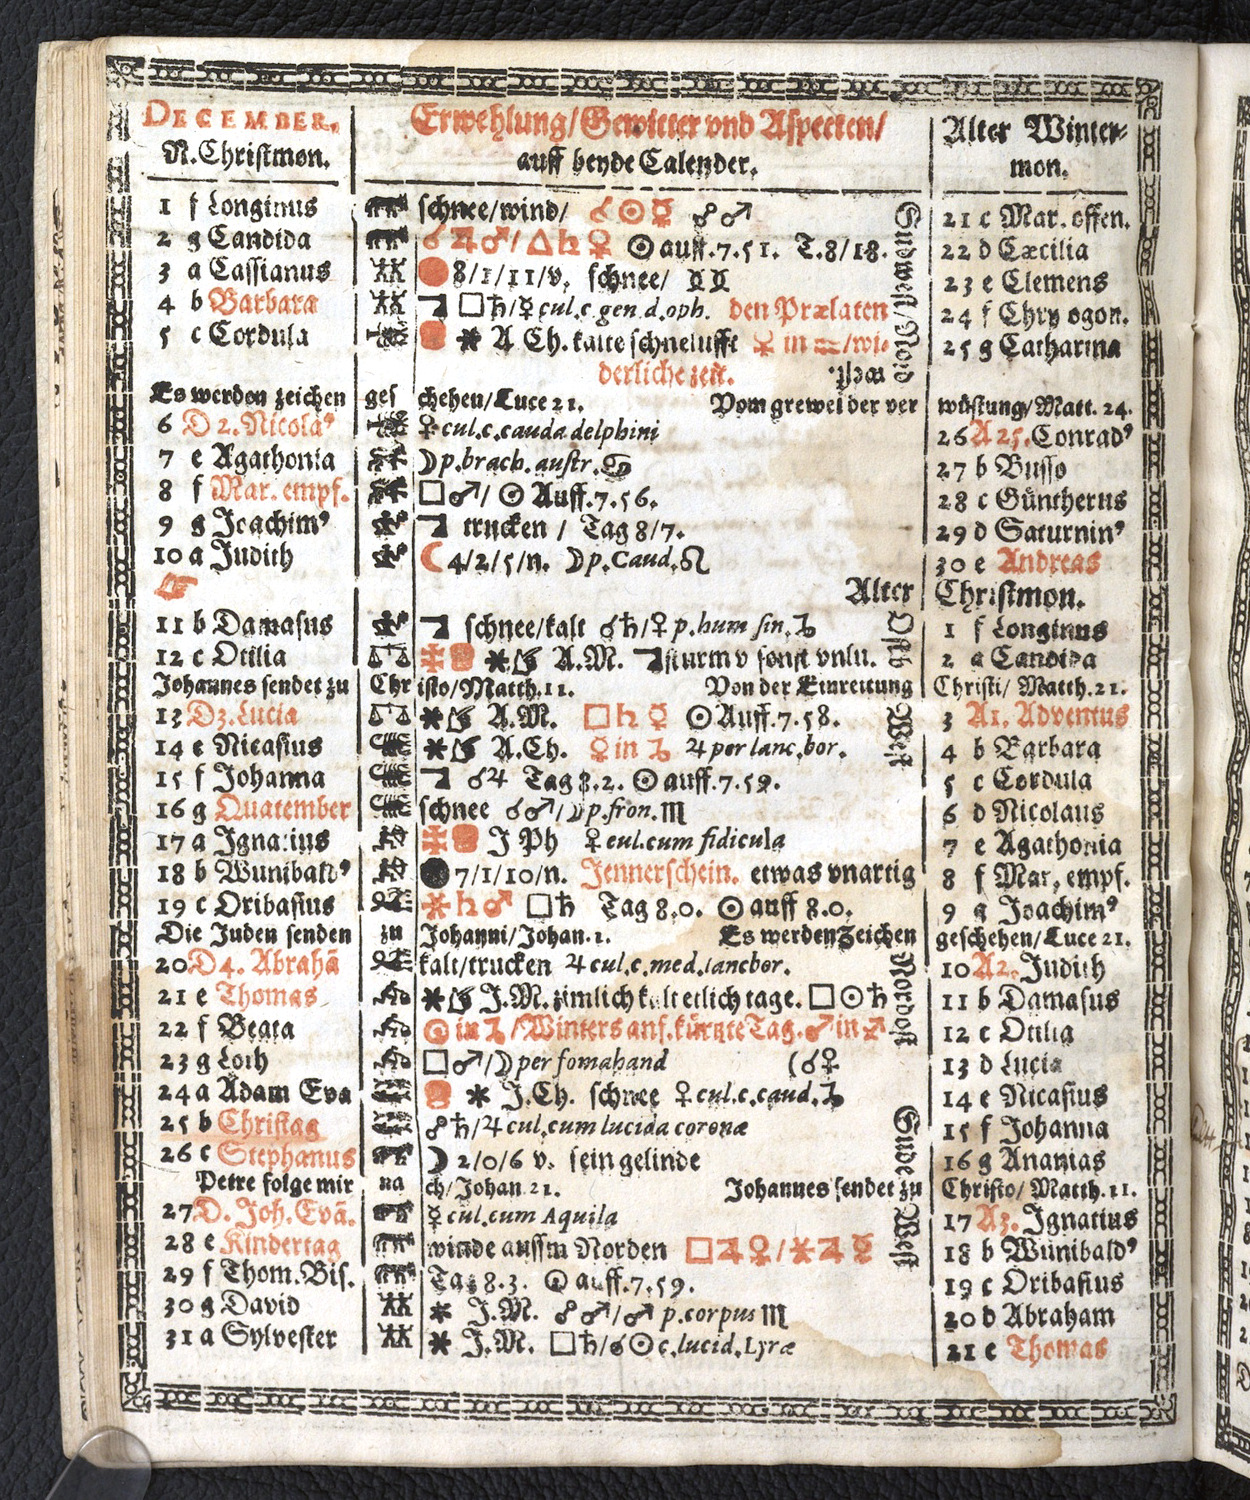 DECEMBER, Erwehlung/Gewitter vnd Aspecten/ Alter Winter-
N. Christmon. auff beyde Calender. mon.
1 f Longinus schnee/wind/ ☌☉☿ ☍♂ 21 c Mar. offen.
2 g Candida ☌♃♂/△♄♀ ☉auff.7.51. T.8/18. 22 d Cæcilia
3 a Cassianus 8/1/11/v. schnee/ 23 e Clemens
4 b Barbara □♄/☿cul.c.gen.d.oph. den Prælaten 24 f Chry ogon.
5 c Cordula ✶ A Ch. kalte schnelufft ☿ in ♒/wi- 25 g Catharina
derliche zeit.
Sudwest/Nord
west.
Es werden zeichen ges chehen/Luce 21. Vom grewel der ver wüstung/Matt. 24.
6 D 2. Nicola⁹ ♀cul.c.cauda delphini 26 A 25. Conrad⁹
7 e Agathonia ☽p.brach.austr.♋ 27 b Busso
8 f Mar. empf. □♂/ ☉ Auff.7.56. 28 c Güntherus
9 g Joachim⁹ trucken / Tag 8/7. 29 d Saturnin⁹
10 a Judith ☾4/2/5/n. ☽p.Caud.♌ 30 e Andreas
Alter Christmon.
11 b Damasus schnee/kalt ☌♄/♀p.hum sin.♑ 1 f Longinus
12 c Otilia ✶ A.M. sturm v sonst vnlu. 2 g Candida
Ost
Johannes sendet zu Chr isto/Matth.11. Von der Einreitung Christi/ Matth.21.
13 D3. Lucia ✶ A.M. □♄☿ ☉Auff.7.58. 3 A1. Adventus
14 e Nicasius ✶ A.Ch. ♀in ♑ ♃per lanc.bor. 4 b Barbara
West
15 f Johanna ☌♃ Tag 8.2. ☉auff.7.59. 5 c Cordula
16 g Quatember schnee ☌♂/☽p.fron.♏ 6 d Nicolaus
17 a Ignatius J Ph ♀cul.cum fidicula 7 e Agathonia
18 b Wunibald⁹ 7/1/10/n. Jennerschein. etwas vnartig 8 f Mar. empf.
19 c Oribasius ✶♄♂ □♄ Tag 8.0. ☉auff 8.0. 9 g Joachim⁹
Die Juden senden zu Johanni/Johan.1. Es werden Zeichen geschehen/Luce 21.
20 D4. Abrahã kalt/trucken ♃cul.c.med.lancbor. 10 A2. Judith
21 e Thomas ✶ J.M. zimlich kalt etlich tage. □☉♄ 11 b Damasus
22 f Beata ☉in♑/Winters anf. kürtzte Tag. ♂in♐ 12 c Otilia
Nordost
23 g Loth □♂/☽per fomahand (☌♀ 13 d Lucia
24 a Adam Eva ✶ J.Ch. schnee ♀cul.c.caud.♑ 14 e Nicasius
25 b Christag ☍♄/♃cul.cum lucida coronæ 15 f Johanna
26 c Stephanus ☽ 2/0/6 v. fein gelinde 16 g Ananias
Sude
Petre folge mir na ch/Johan 21. Johannes sendet zu Christo/ Matth.11.
27 D. Joh. Evã. ☿cul.cum Aquila 17 A3. Ignatius
28 e Kindertag winde aussm Norden □♃♀/✶♃☿ 18 b Wunibald⁹
West
29 f Thom. Bis. Tag 8.3. ☉auff.7.59. 19 c Oribasius
30 g David ✶ J.M. ☍♂/♂p.corpus ♏ 20 d Abraham
31 a Sylvester ✶ J.M. □♄/☌☉c.lucid.Lyræ 21 e Thomas